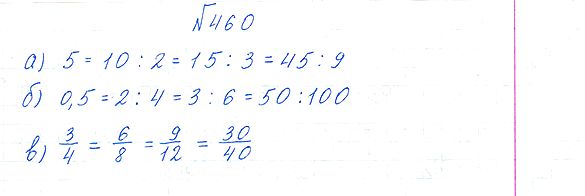 №460
а) 5 = 10 : 2 = 15 : 3 = 45 : 9
б) 0,5 = 2 : 4 = 3 : 6 = 50 : 100
в) 3/4 = 6/8 = 9/12 = 30/40